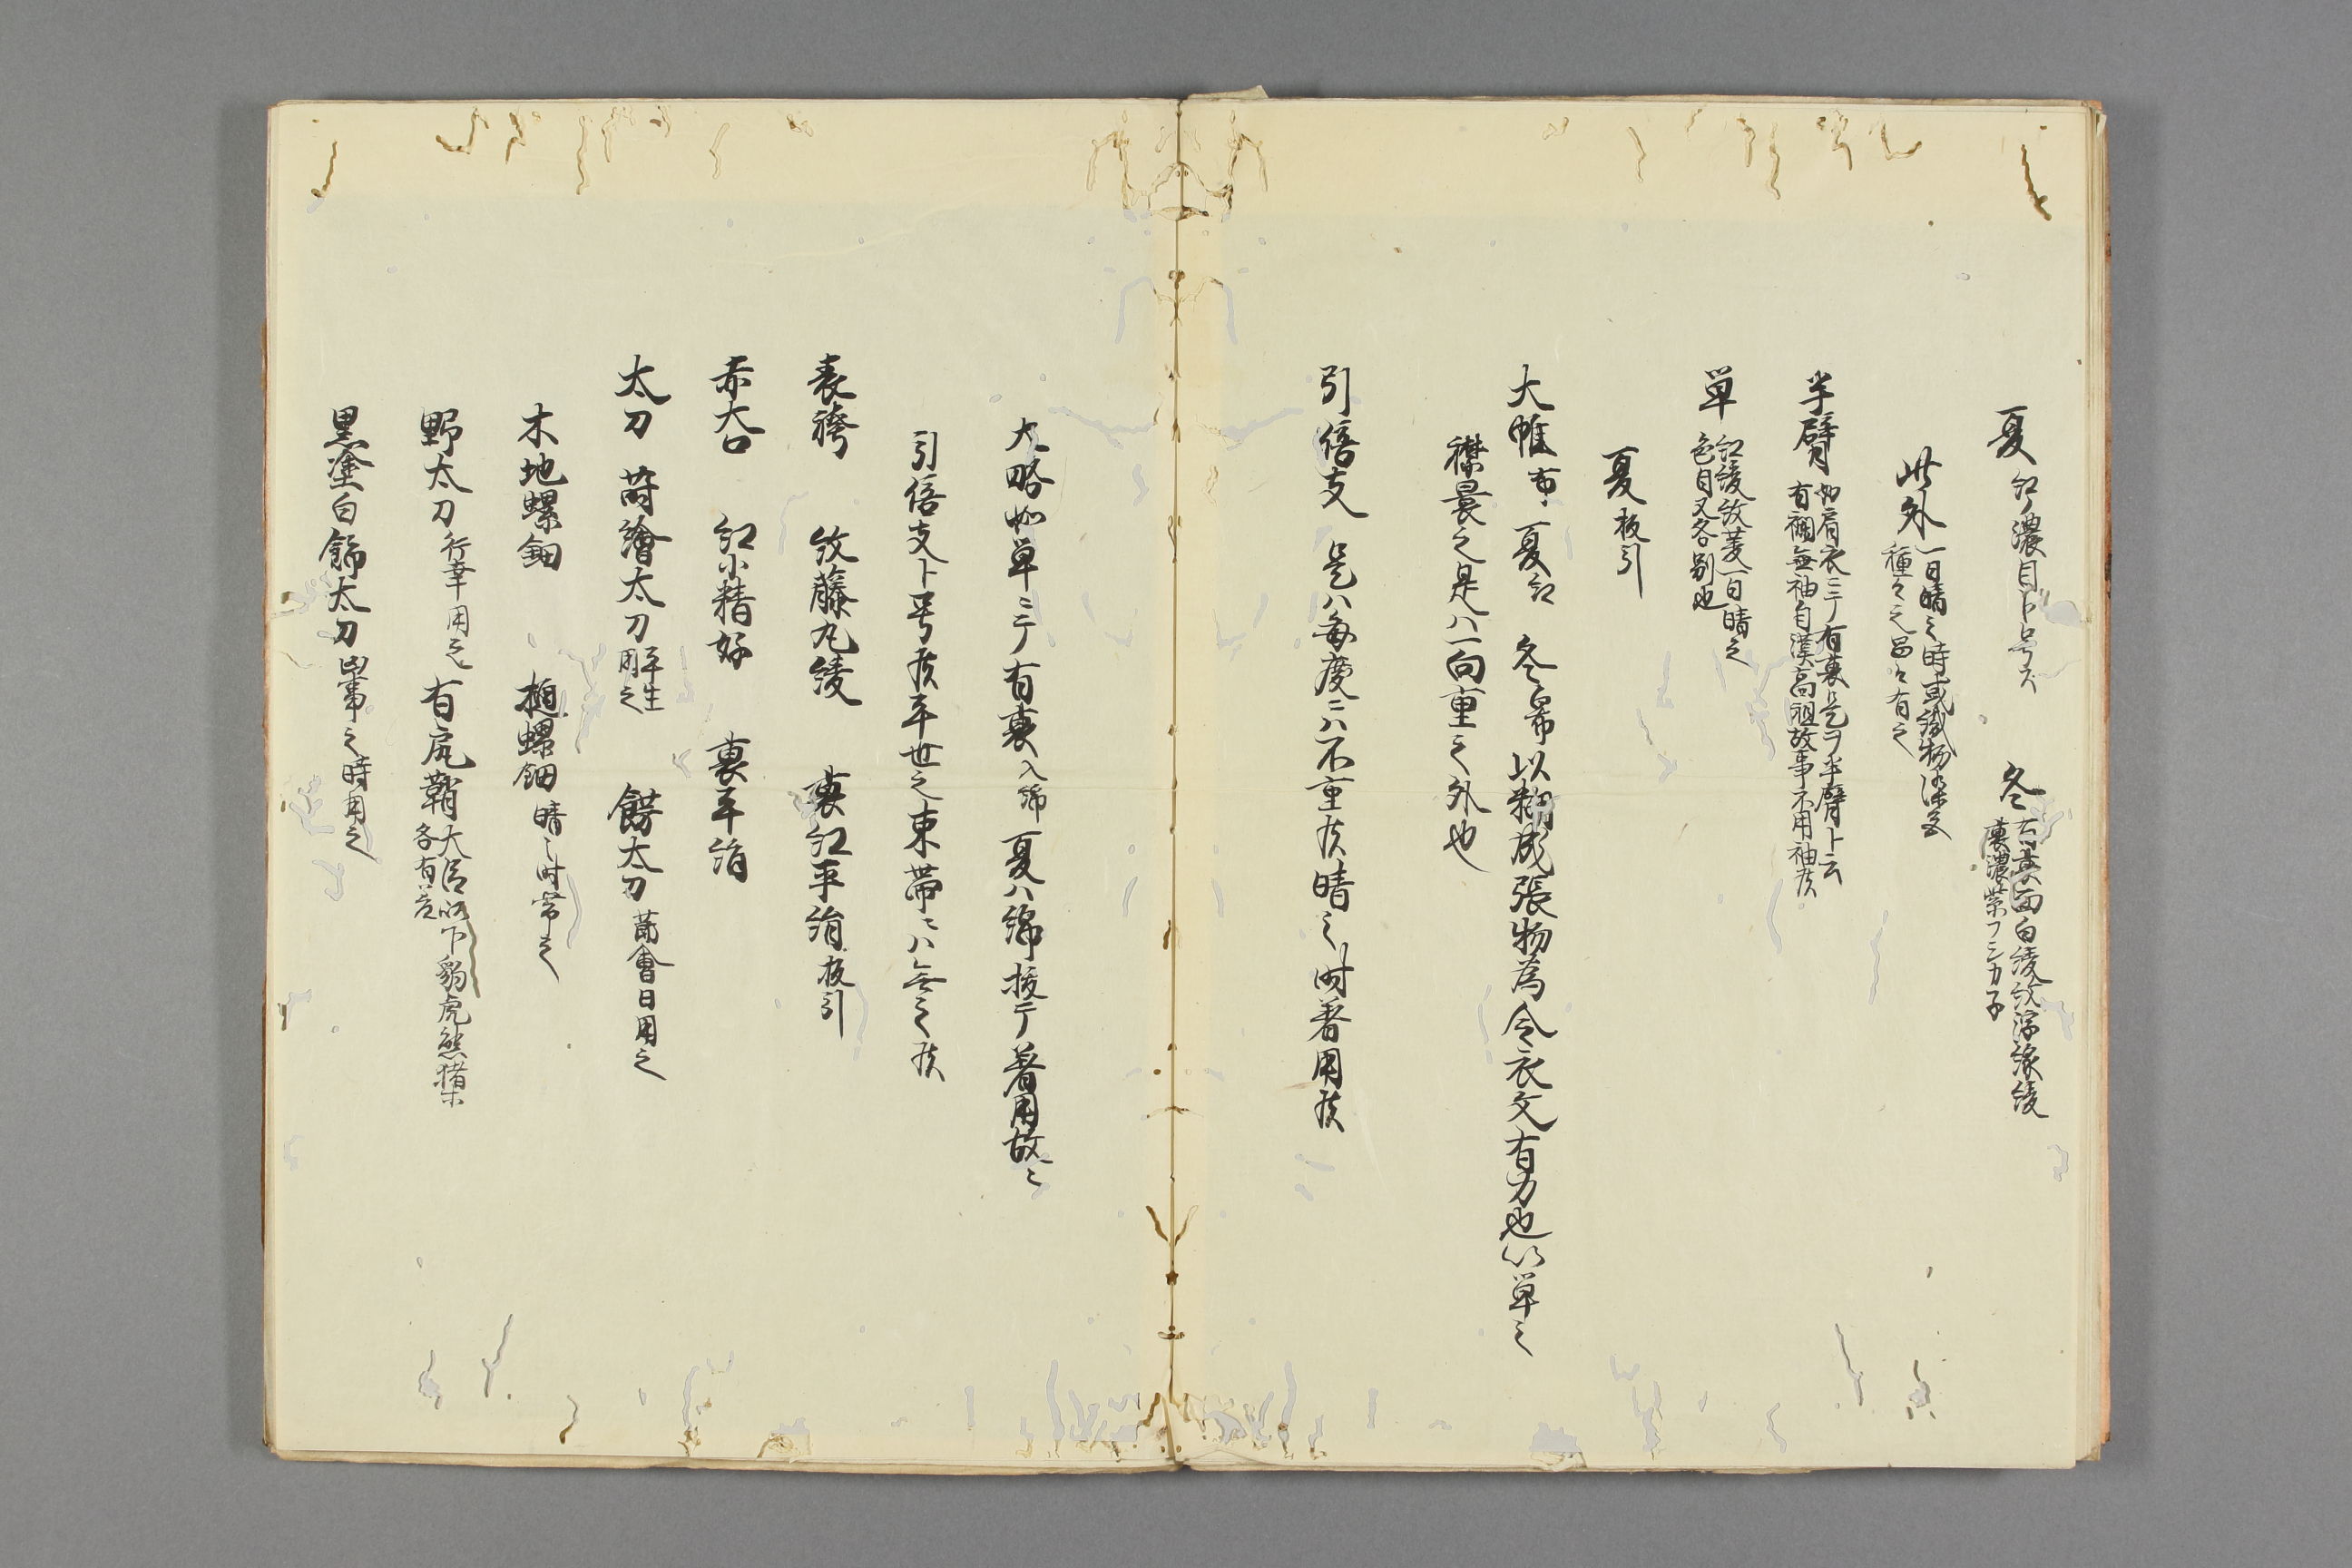 夏 紅濃目ト号ス 冬 右表面白綾紋浮線綾
裏濃紫フシカ子
此外 一日晴之時或織物染文
種々之品々有之
半臂 如肩衣ニテ有裏是ヲ半臂ト云
有襴無袖自漢高祖故事不用袖候
単 紅綾紋菱一日晴之
色目又各別也
夏 板引
大帷 布 夏紅 冬帛以糊成張物為令衣文有力也以単之
襟裏之是ハ一向重之外也
引倍支 是ハ毎度ニハ不重候晴之時著用候
大略如単ニテ有裏入綿夏ハ綿抜テ著用故ニ
引倍支ト号候平世之束帯ニハ無之候
表袴 紋藤丸綾 裏紅平絹 板引
赤大口 紅小精好 裏平絹
太刀 蒔繪太刀 平生
用之 餝太刀 節會日用之
木地螺鈿 樋螺鈿 晴之時帯之
野太刀 行幸用之 有尻鞘 大臣以下豹虎熊猪等
各有差
黒塗白餝太刀 凶事之時用之